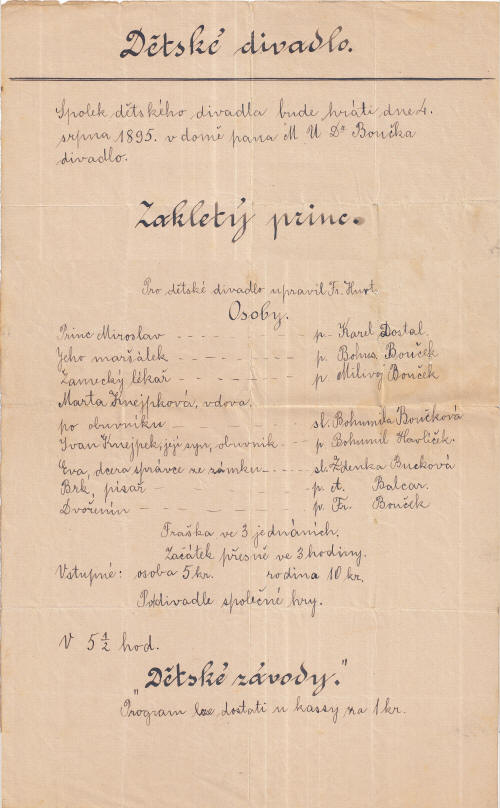 Dětské divadlo.
Spolek dětského divadla bude hráti dne 4.
srpna 1895. v domě pana M U Dr Boučka
divadlo.
Zakletý princ.
Pro dětské divadlo upravil Fr. Hurt.
Osoby.
Princ Miroslav - - - - - p. Karel Dostal.
Jeho maršálek - - - - - p. Bohuš Bouček
Zamecký lékař - - - - - p. Milivoj Bouček
Marta Knejpková, vdova.
po obuvníku - - - - - sl. Bohumila Boučková
Ivan Knejpek, její syn, obuvník - - p Bohumil Havlíček.
Eva, dcera správce ze zámku - - - sl. Zdenka Bučková
Brk, písař - - - - - p. A. Balcar.
Dvořenín - - - - - p. Fr. Bouček
Fraška ve 3 jednáních.
Začátek přesně ve 3 hodiny.
Vstupné: osoba 5 kr. rodina 10 kr.
Po divadle společné hry.
V 5 1/2 hod.
"Dětské závody."
Program lze dostati u kassy za 1 kr.